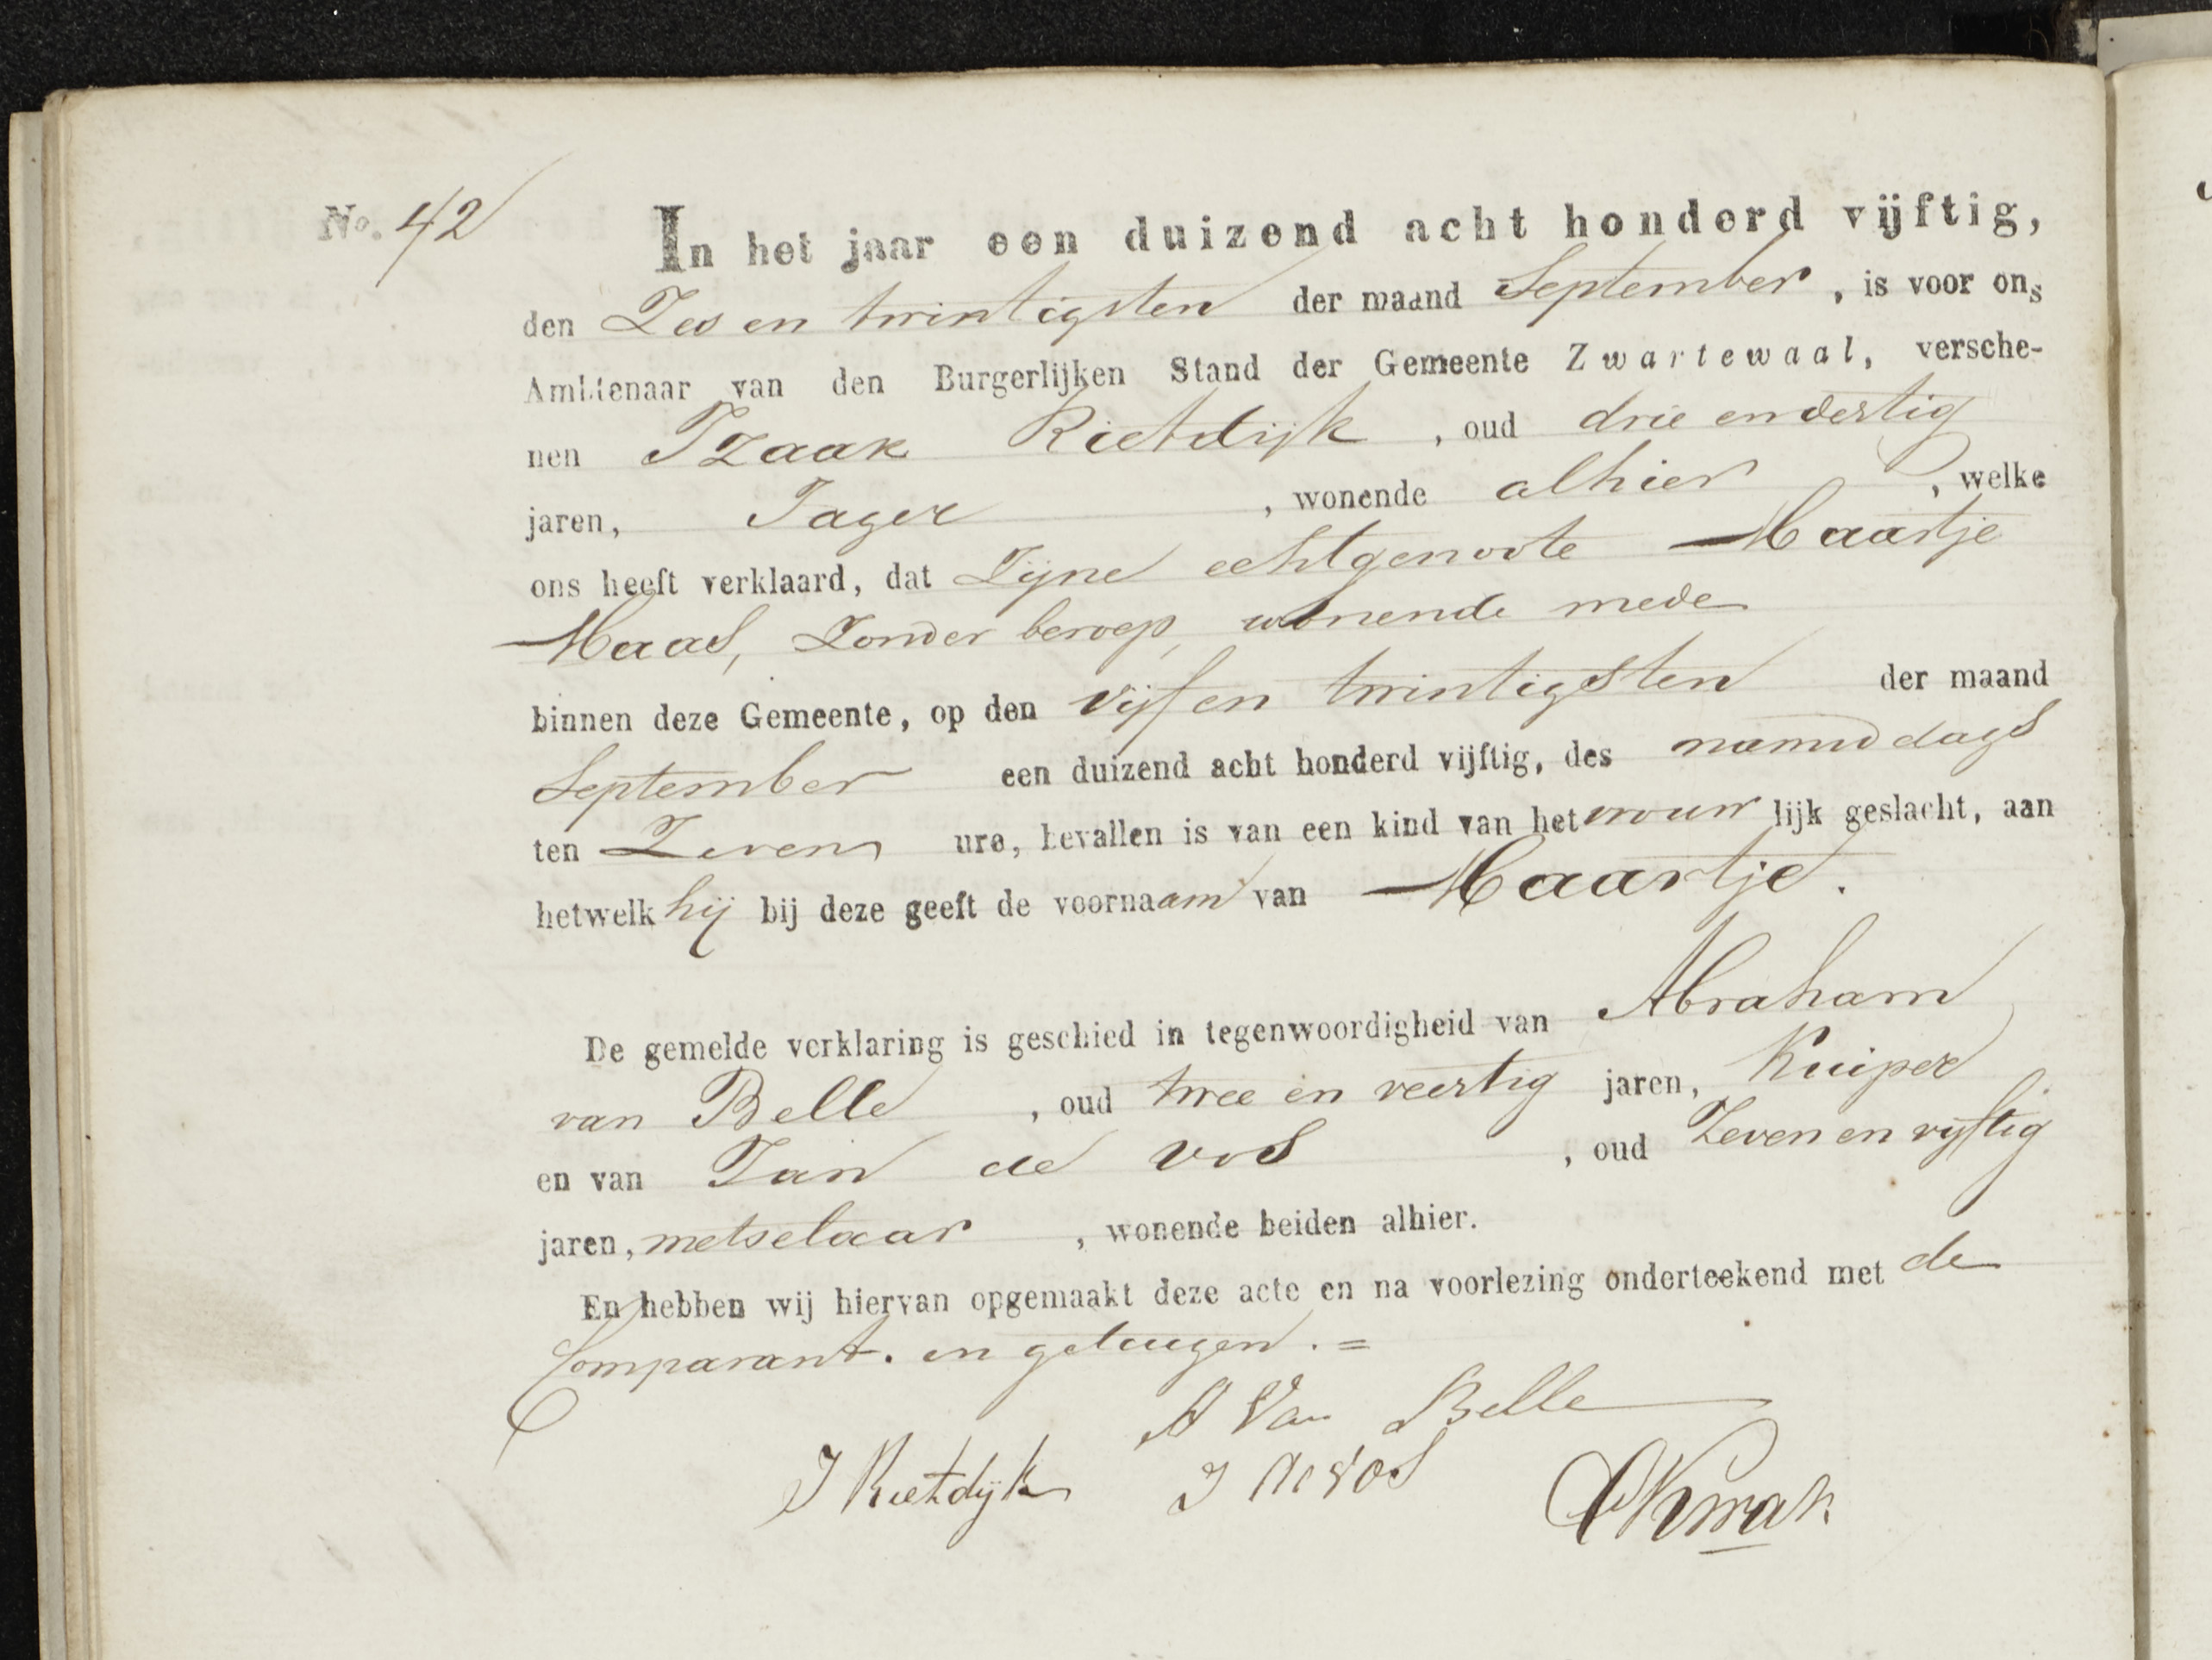 No. 42
In het jaar een duizend acht honderd vijftig,
den Zes en twintigsten der maand September, is voor ons
Ambtenaar van den Burgerlijken Stand der Gemeente Zwartewaal, versche-
nen Izaak Rietdijk, oud drie en dertig
jaren, Jager, wonende alhier, welke
ons heeft verklaard, dat Zijne echtgenoote Maartje
Maas, Zonder beroep, wonende mede
binnen deze Gemeente, op den vijf en twintigsten der maand
September een duizend acht honderd vijftig, des namiddags
ten Zeven ure, bevallen is van een kind van het vrouwlijk geslacht, aan
hetwelk hij bij deze geeft de voornaam van Maartje.
De gemelde verklaring is geschied in tegenwoordigheid van Abraham
van Belle, oud twee en veertig jaren, Kuiper
en van Jan de Vos, oud Zeven en vijftig
jaren, metselaar, wonende beiden alhier.
En hebben wij hiervan opgemaakt deze acte en na voorlezing onderteekend met de
Comparant. en getuigen. =
A Van Belle
I Rietdijk J de Vos